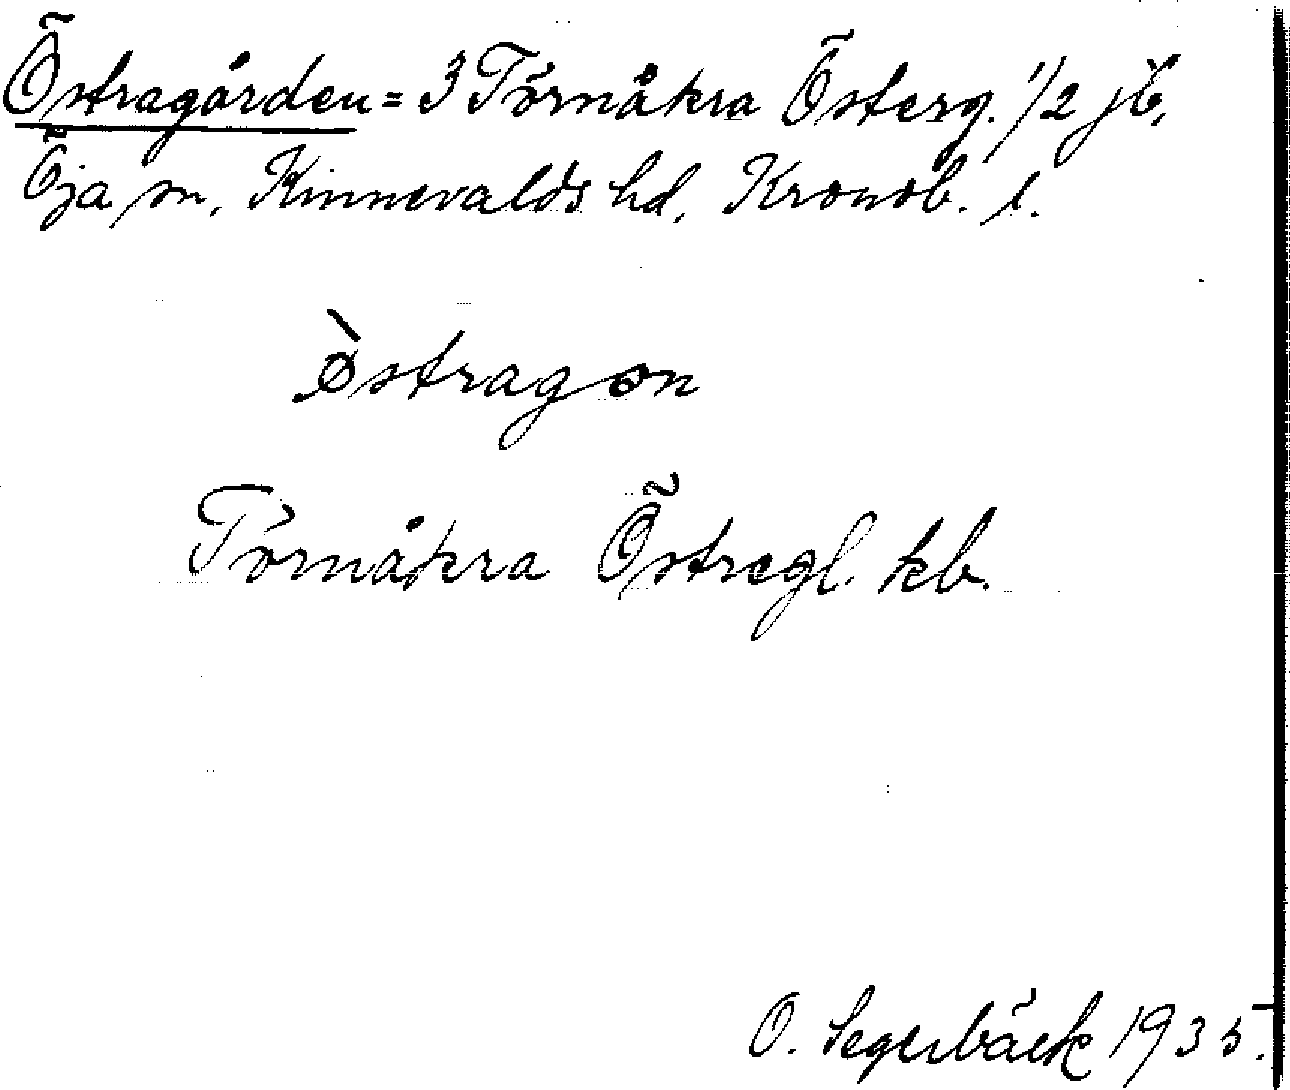 Östragården = 3 Törnåkra Österg. 1/2 jb,
Öja sn, Kinnevalds hd, Kronob. l.
Östragon
Törnåkra Östregl. kb.
O. Segerbäck 1935.